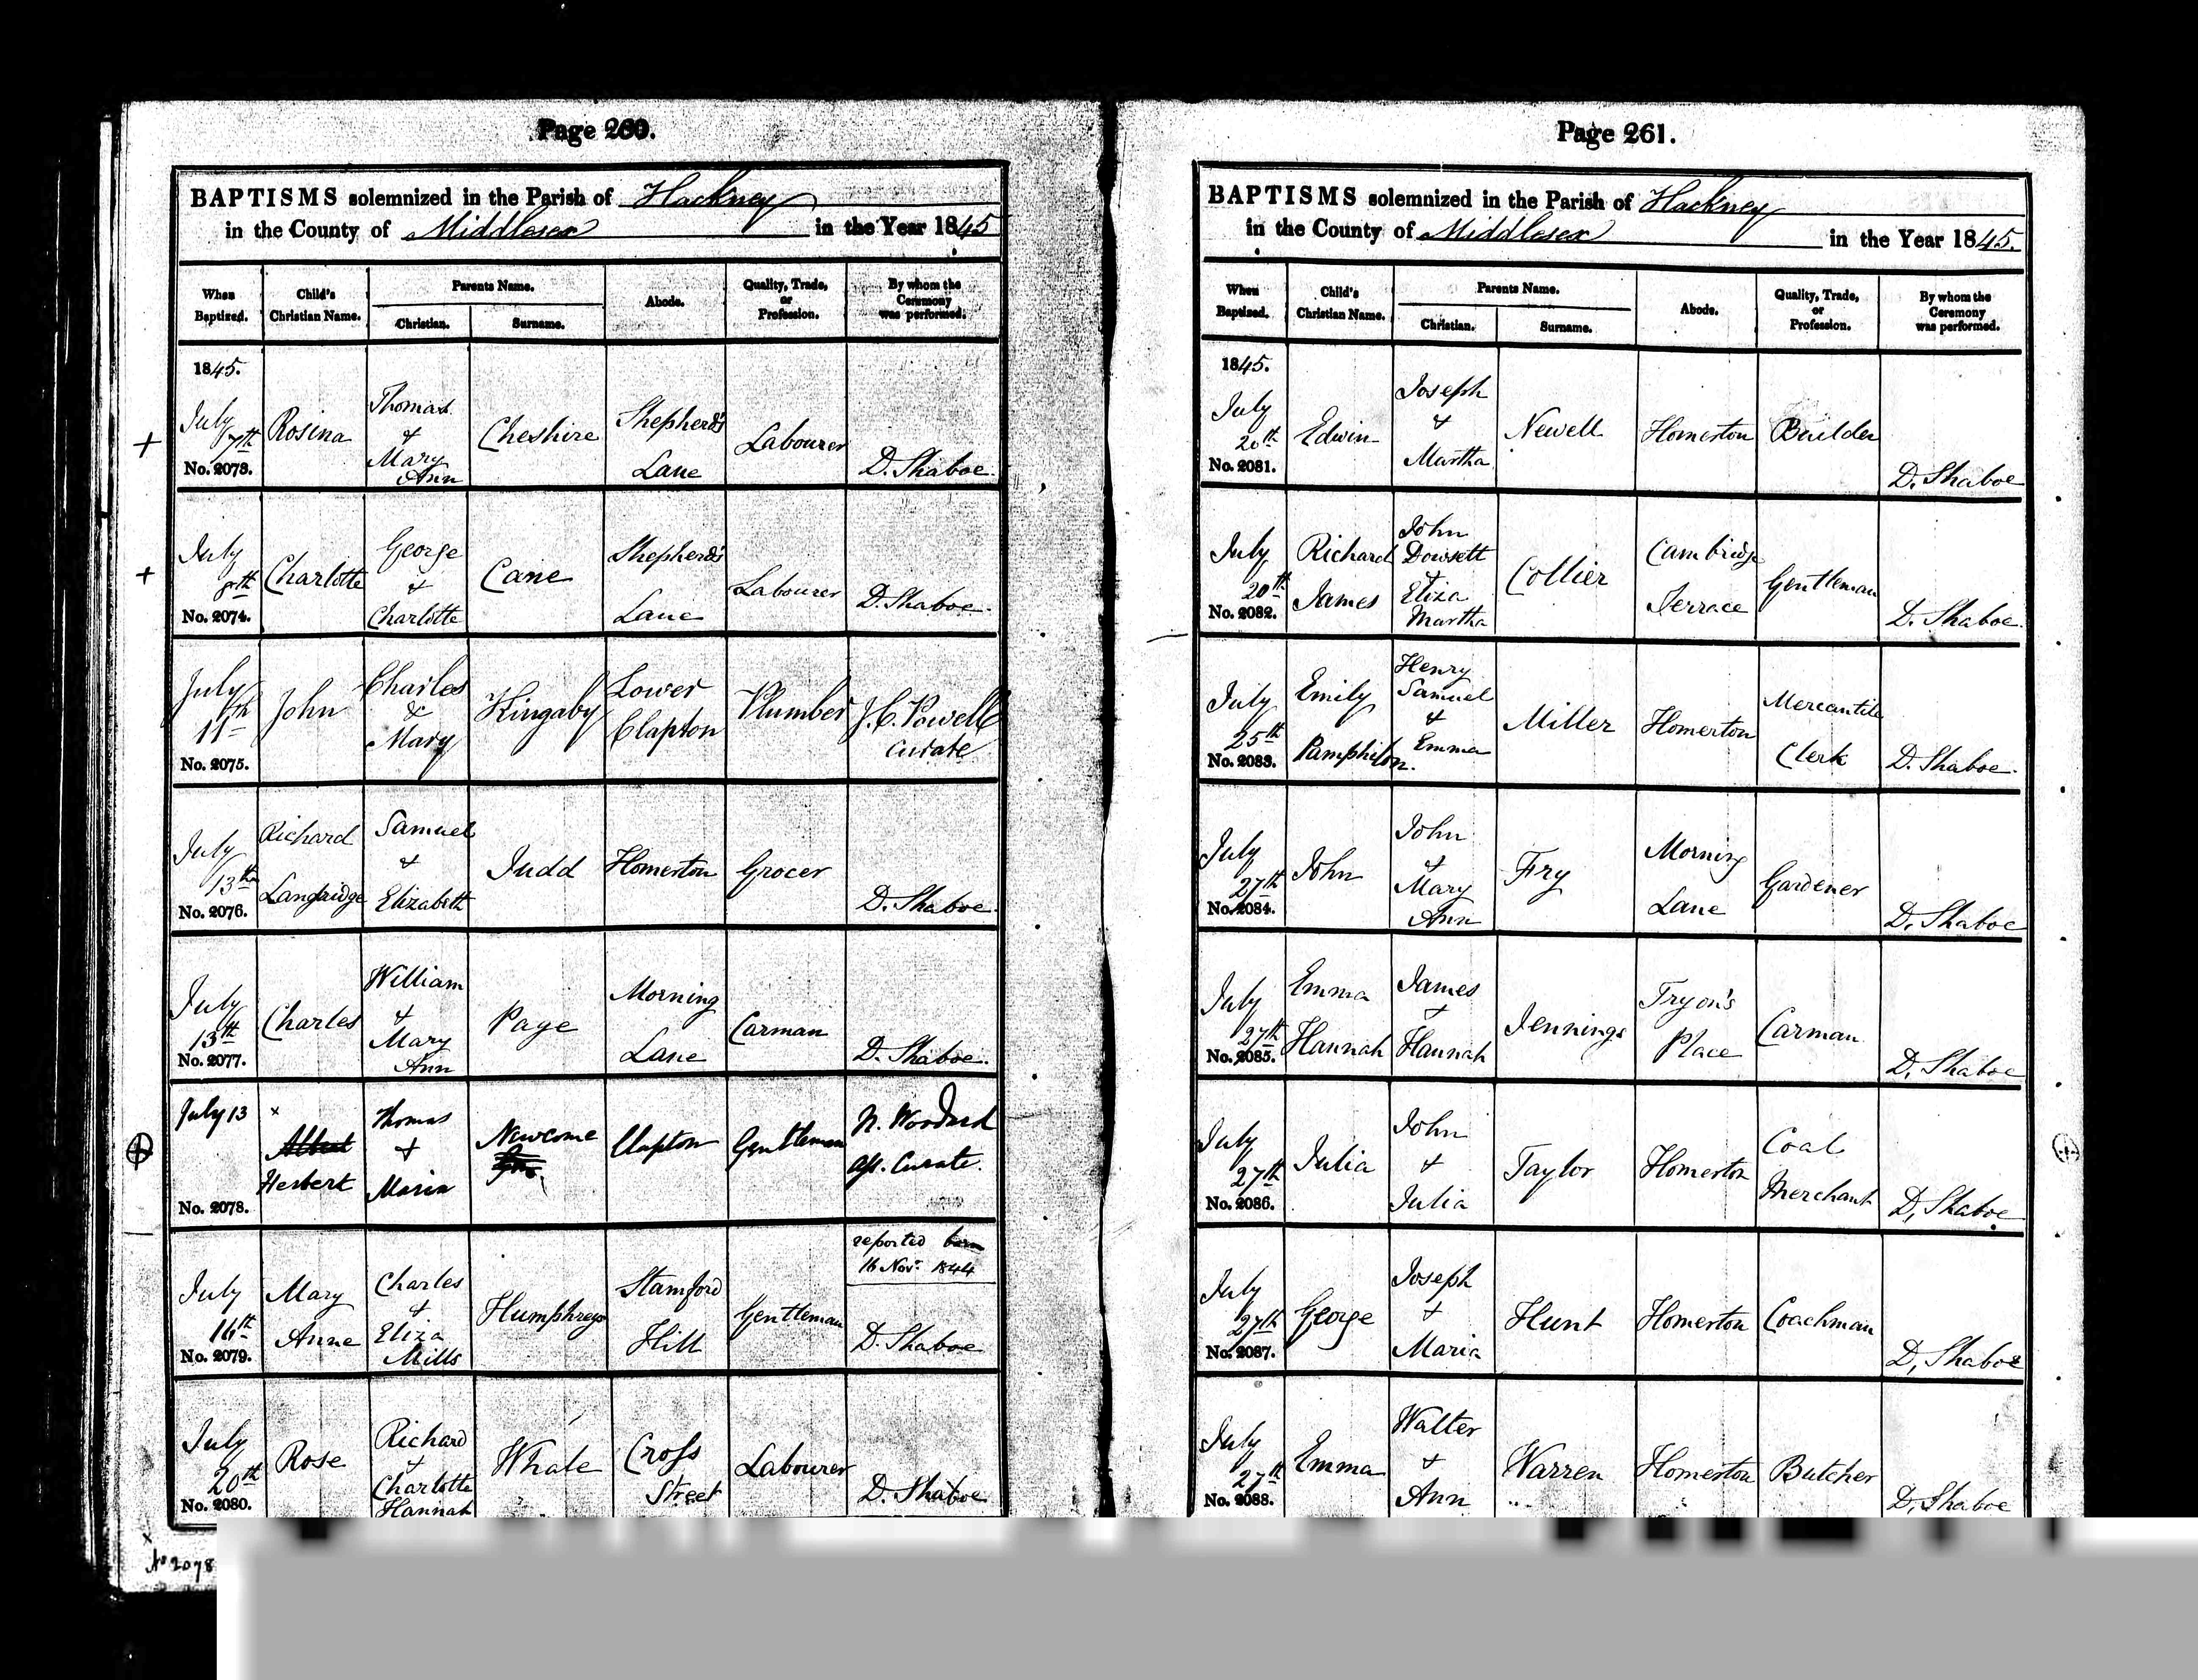 Page 260.
BAPTISMS solemnized in the Parish of Hackney
in the County of Middlesex in the Year 1845
When Baptized.
Child's Christian Name.
Parents Name.
Christian.
Surname.
Abode.
Quality, Trade, or Profession.
By whom the Ceremony was performed.
1845.
July 7th
No. 2073.
Rosina
Thomas & Mary Ann
Cheshire
Shepherd's Lane
Labourer
D. Shaboe.
July 8th
No. 2074.
Charlotte
George & Charlotte
Cane
Shepherd's Lane
Labourer
D. Shaboe.
July 11th
No. 2075.
John
Charles & Mary
Kingaby
Lower Clapton
Plumber
J. C. Powell Curate
July 13th
No. 2076.
Richard Langridge
Samuel & Elizabeth
Judd
Homerton
Grocer
D. Shaboe.
July 13th
No. 2077.
Charles
William & Mary Ann
Page
Morning Lane
Carman
D. Shaboe.
July 13
No. 2078.
x
Albert
Herbert
Thomas + Maria
Newcome
Clapton
Gentleman
N. Woodard
Ass. Curate.
July 16th
No. 2079.
Mary Anne
Charles & Eliza Mills
Humphreys
Stamford Hill
Gentleman
reported born
16 Novr. 1844
D. Shaboe
July 20th
No. 2080.
Rose
Richard & Charlotte Hannah
Whale
Cross Street
Labourer
D. Shaboe
x
No 2078
Page 261.
BAPTISMS solemnized in the Parish of Hackney
in the County of Middlesex in the Year 1845.
When Baptized.
Child's Christian Name.
Parents Name.
Christian.
Surname.
Abode.
Quality, Trade, or Profession.
By whom the Ceremony was performed.
1845.
July 20th
No. 2081.
Edwin
Joseph & Martha
Newell
Homerton
Builder
D. Shaboe
July 20th
No. 2082.
Richard James
John Dowsett & Eliza Martha
Collier
Cambridge Terrace
Gentleman
D. Shaboe.
July 25th
No. 2083.
Emily Pamphilon.
Henry Samuel & Emma
Miller
Homerton
Mercantile Clerk
D. Shaboe.
July 27th
No. 2084.
John
John & Mary Ann
Fry
Morning Lane
Gardener
D. Shaboe
July 27th
No. 2085.
Emma Hannah
James & Hannah
Jennings
Tryon's Place
Carman
D. Shaboe
July 27th
No. 2086.
Julia
John & Julia
Taylor
Homerton
Coal Merchant
D. Shaboe
July 27th
No. 2087.
George
Joseph & Maria
Hunt
Homerton
Coachman
D. Shaboe
July 27th
No. 2088.
Emma
Walter & Ann
Warren
Homerton
Butcher
D. Shaboe